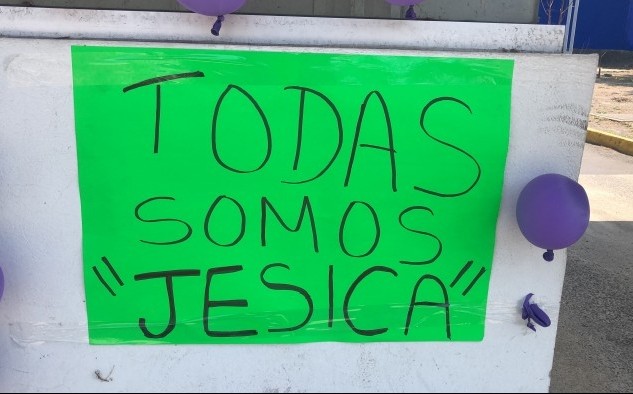 TODAS
SOMOS
"JESICA"